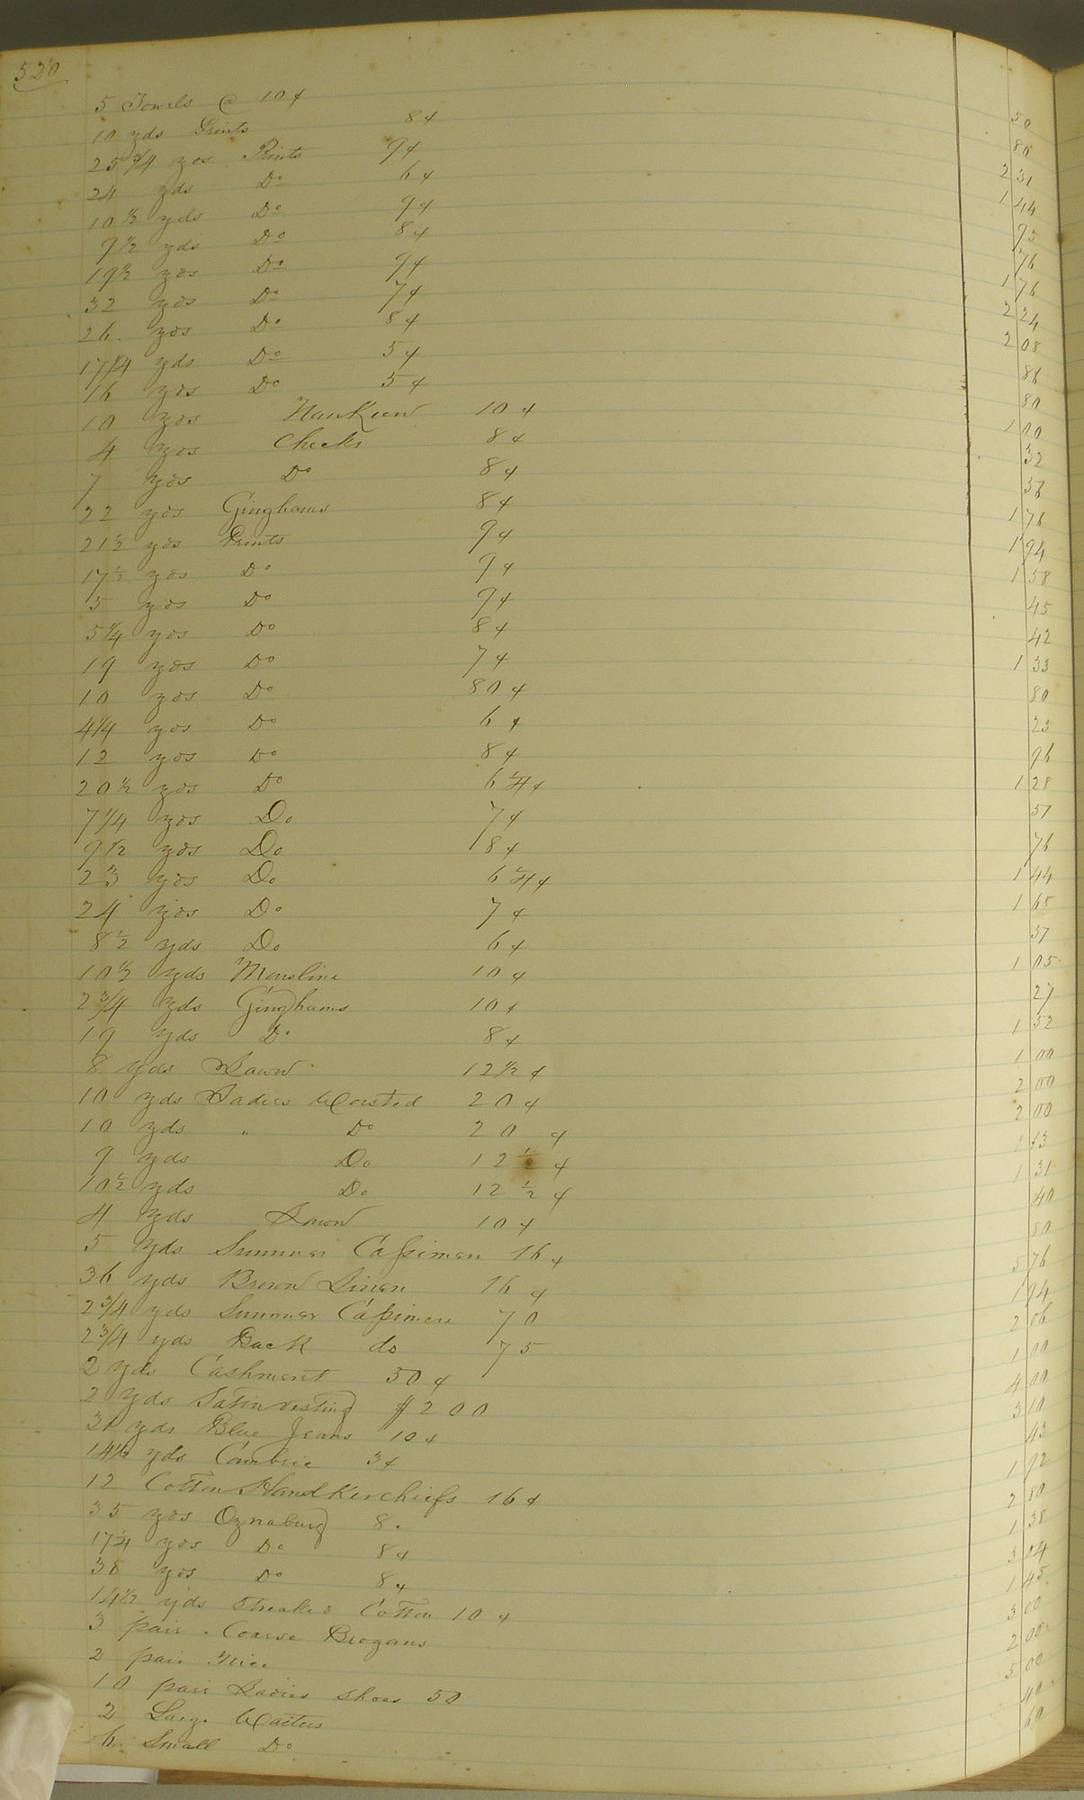 520
5 Towels @ 10¢ 50
10 yds Prints 8¢ 80
25 3/4 yds Prints 9¢ 2 31
24 yds Do 6¢ 1 44
10 1/2 yds Do 9¢ 95
9 1/2 yds Do 8¢ 76
19 1/2 yds Do 9¢ 1 76
32 yds Do 7¢ 2 24
26 yds Do 8¢ 2 08
17 1/4 yds Do 5¢ 86
16 yds Do 5¢ 80
10 yds Nankeen 10¢ 1 00
4 yds Checks 8¢ 32
7 yds Do 8¢ 56
22 yds Ginghams 8¢ 1 76
21 1/2 yds Prints 9¢ 1 94
17 1/2 yds Do 9¢ 1 58
5 yds Do 9¢ 45
5 1/4 yds Do 8¢ 42
19 yds Do 7¢ 1 33
10 yds Do 80¢ 80
4 1/4 yds Do 6¢ 25
12 yds Do 8¢ 96
20 1/2 yds Do 6 1/4¢ 1 28
7 1/4 yds Do 7¢ 51
9 1/2 yds Do 8¢ 76
23 yds Do 6 1/4¢ 1 44
24 yds Do 7¢ 1 65
8 1/2 yds Do 6¢ 51
10 1/2 yds Mousline 10¢ 1 05
2 3/4 yds Ginghams 10¢ 27
19 yds Do 8¢ 1 52
8 yds Lawn 12 1/2¢ 1 00
10 yds Ladies Worsted 20¢ 2 00
10 yds " Do 20¢ 2 00
9 yds Do 12 1/2¢ 1 13
10 1/2 yds Do 12 1/2¢ 1 31
4 yds Lawn 10¢ 40
5 yds Summer Cassimere 16¢ 80
36 yds Brown Linen 16¢ 5 76
2 3/4 yds Summer Cassimere 70 1 94
2 3/4 yds Back do 75 2 06
2 yds Cashment 50¢ 1 00
2 yds Satin vesting $2 00 4 00
31 yds Blue Jeans 10¢ 3 10
14 1/2 yds Cambric 3¢ 43
12 Cotton Handkerchiefs 16¢ 1 92
35 yds Oznaburg 8. 2 80
17 1/4 yds Do 8¢ 1 38
38 yds Do 8¢ 3 04
14 1/2 yds Cotton 10¢ 1 45
3 pair Coarse Brogans 3 00
2 pair 2 00
10 pair Ladies Shoes 50 5 00
2 Large Waiters 40
6 Small Do 60